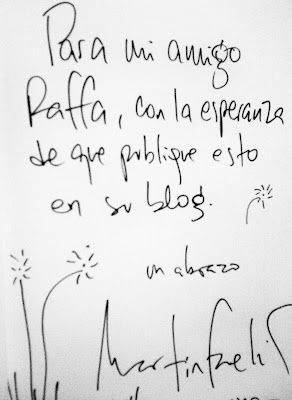 Para mi amigo
Raffa, con la esperanza
de que publique esto
en su blog.
un abrazo